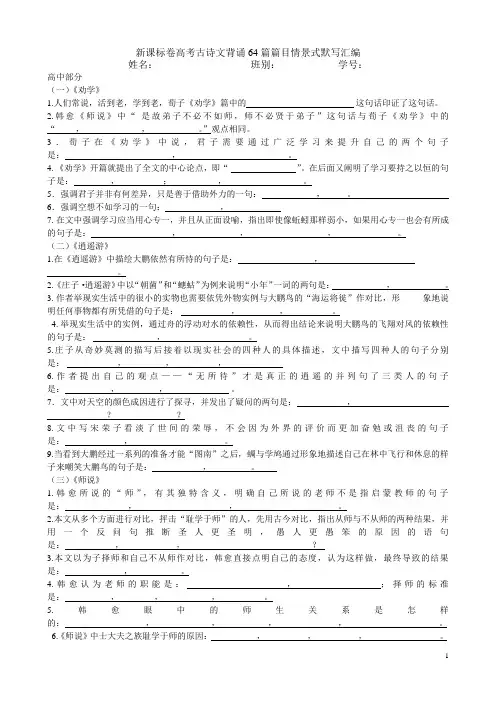 新课标卷高考古诗文背诵64篇篇目情景式默写汇编
姓名： 班别： 学号：
高中部分
（一）《劝学》
1.人们常说，活到老，学到老，荀子《劝学》篇中的 这句话印证了这句话。
2.韩愈《师说》中“是故弟子不必不如师，师不必贤于弟子”这句话与荀子《劝学》中的
“ ， ， 。”观点相同。
3．荀子在《劝学》中说，君子需要通过广泛学习来提升自己的两个句子
是： ， 。
4.《劝学》开篇就提出了全文的中心论点，即“ ”，在后面又阐明了学习要持之以恒的句
子是： ， ； ， 。
5．强调君子并非有何差异，只是善于借助外力的一句： ， 。
6．强调空想不如学习的一句： ， 。
7.在文中强调学习应当用心专一，并且从正面设喻，指出即使像蚯蚓那样弱小，如果用心专一也会有所成
的句子是： ， ， ， 。
（二）《逍遥游》
1.在《逍遥游》中描绘大鹏依然有所恃的句子是： ，
。
2.《庄子·逍遥游》中以“朝菌”和“蟪蛄”为例来说明“小年”一词的两句是： ， 。
3.作者举现实生活中的很小的实物也需要依凭外物实例与大鹏鸟的“海运将徙”作对比，形 象地说
明任何事物都有所凭借的句子是： ， ， 。
4.举现实生活中的实例，通过舟的浮动对水的依赖性，从而得出结论来说明大鹏鸟的飞翔对风的依赖性
的句子是： ， 。
5.庄子从奇妙莫测的描写后接着以现实社会的四种人的具体描述，文中描写四种人的句子分别
是： ， ， ，
6.作者提出自己的观点——“无所待”才是真正的逍遥的并列句了三类人的句子
是： ， ， 。
7．文中对天空的颜色成因进行了探寻，并发出了疑问的两句是： ，
？ ？
8.文中写宋荣子看淡了世间的荣辱，不会因为外界的评价而更加奋勉或沮丧的句子
是： ， 。
9.当看到大鹏经过一系列的准备才能“图南”之后，蜩与学鸠通过形象地描述自己在林中飞行和休息的样
子来嘲笑大鹏鸟的句子是： ， 。
（三）《师说》
1.韩愈所说的“师”，有其独特含义，明确自己所说的老师不是指启蒙教师的句子
是： ， ， 。
2.本文从多个方面进行对比，抨击“耻学于师”的人，先用古今对比，指出从师与不从师的两种结果，并
用一个反问句推断圣人更圣明，愚人更愚笨的原因的语句
是： ， ， ？
3.本文以为子择师和自己不从师作对比，韩愈直接点明自己的态度，认为这样做，最终导致的结果
是： ， 。
4.韩愈认为老师的职能是： ， ；择师的标准
是： ， ， ， 。
5.韩愈眼中的师生关系是怎样
的： ， ， ， ， 。
6.《师说》中士大夫之族耻学于师的原因： ， ， ， 。
1